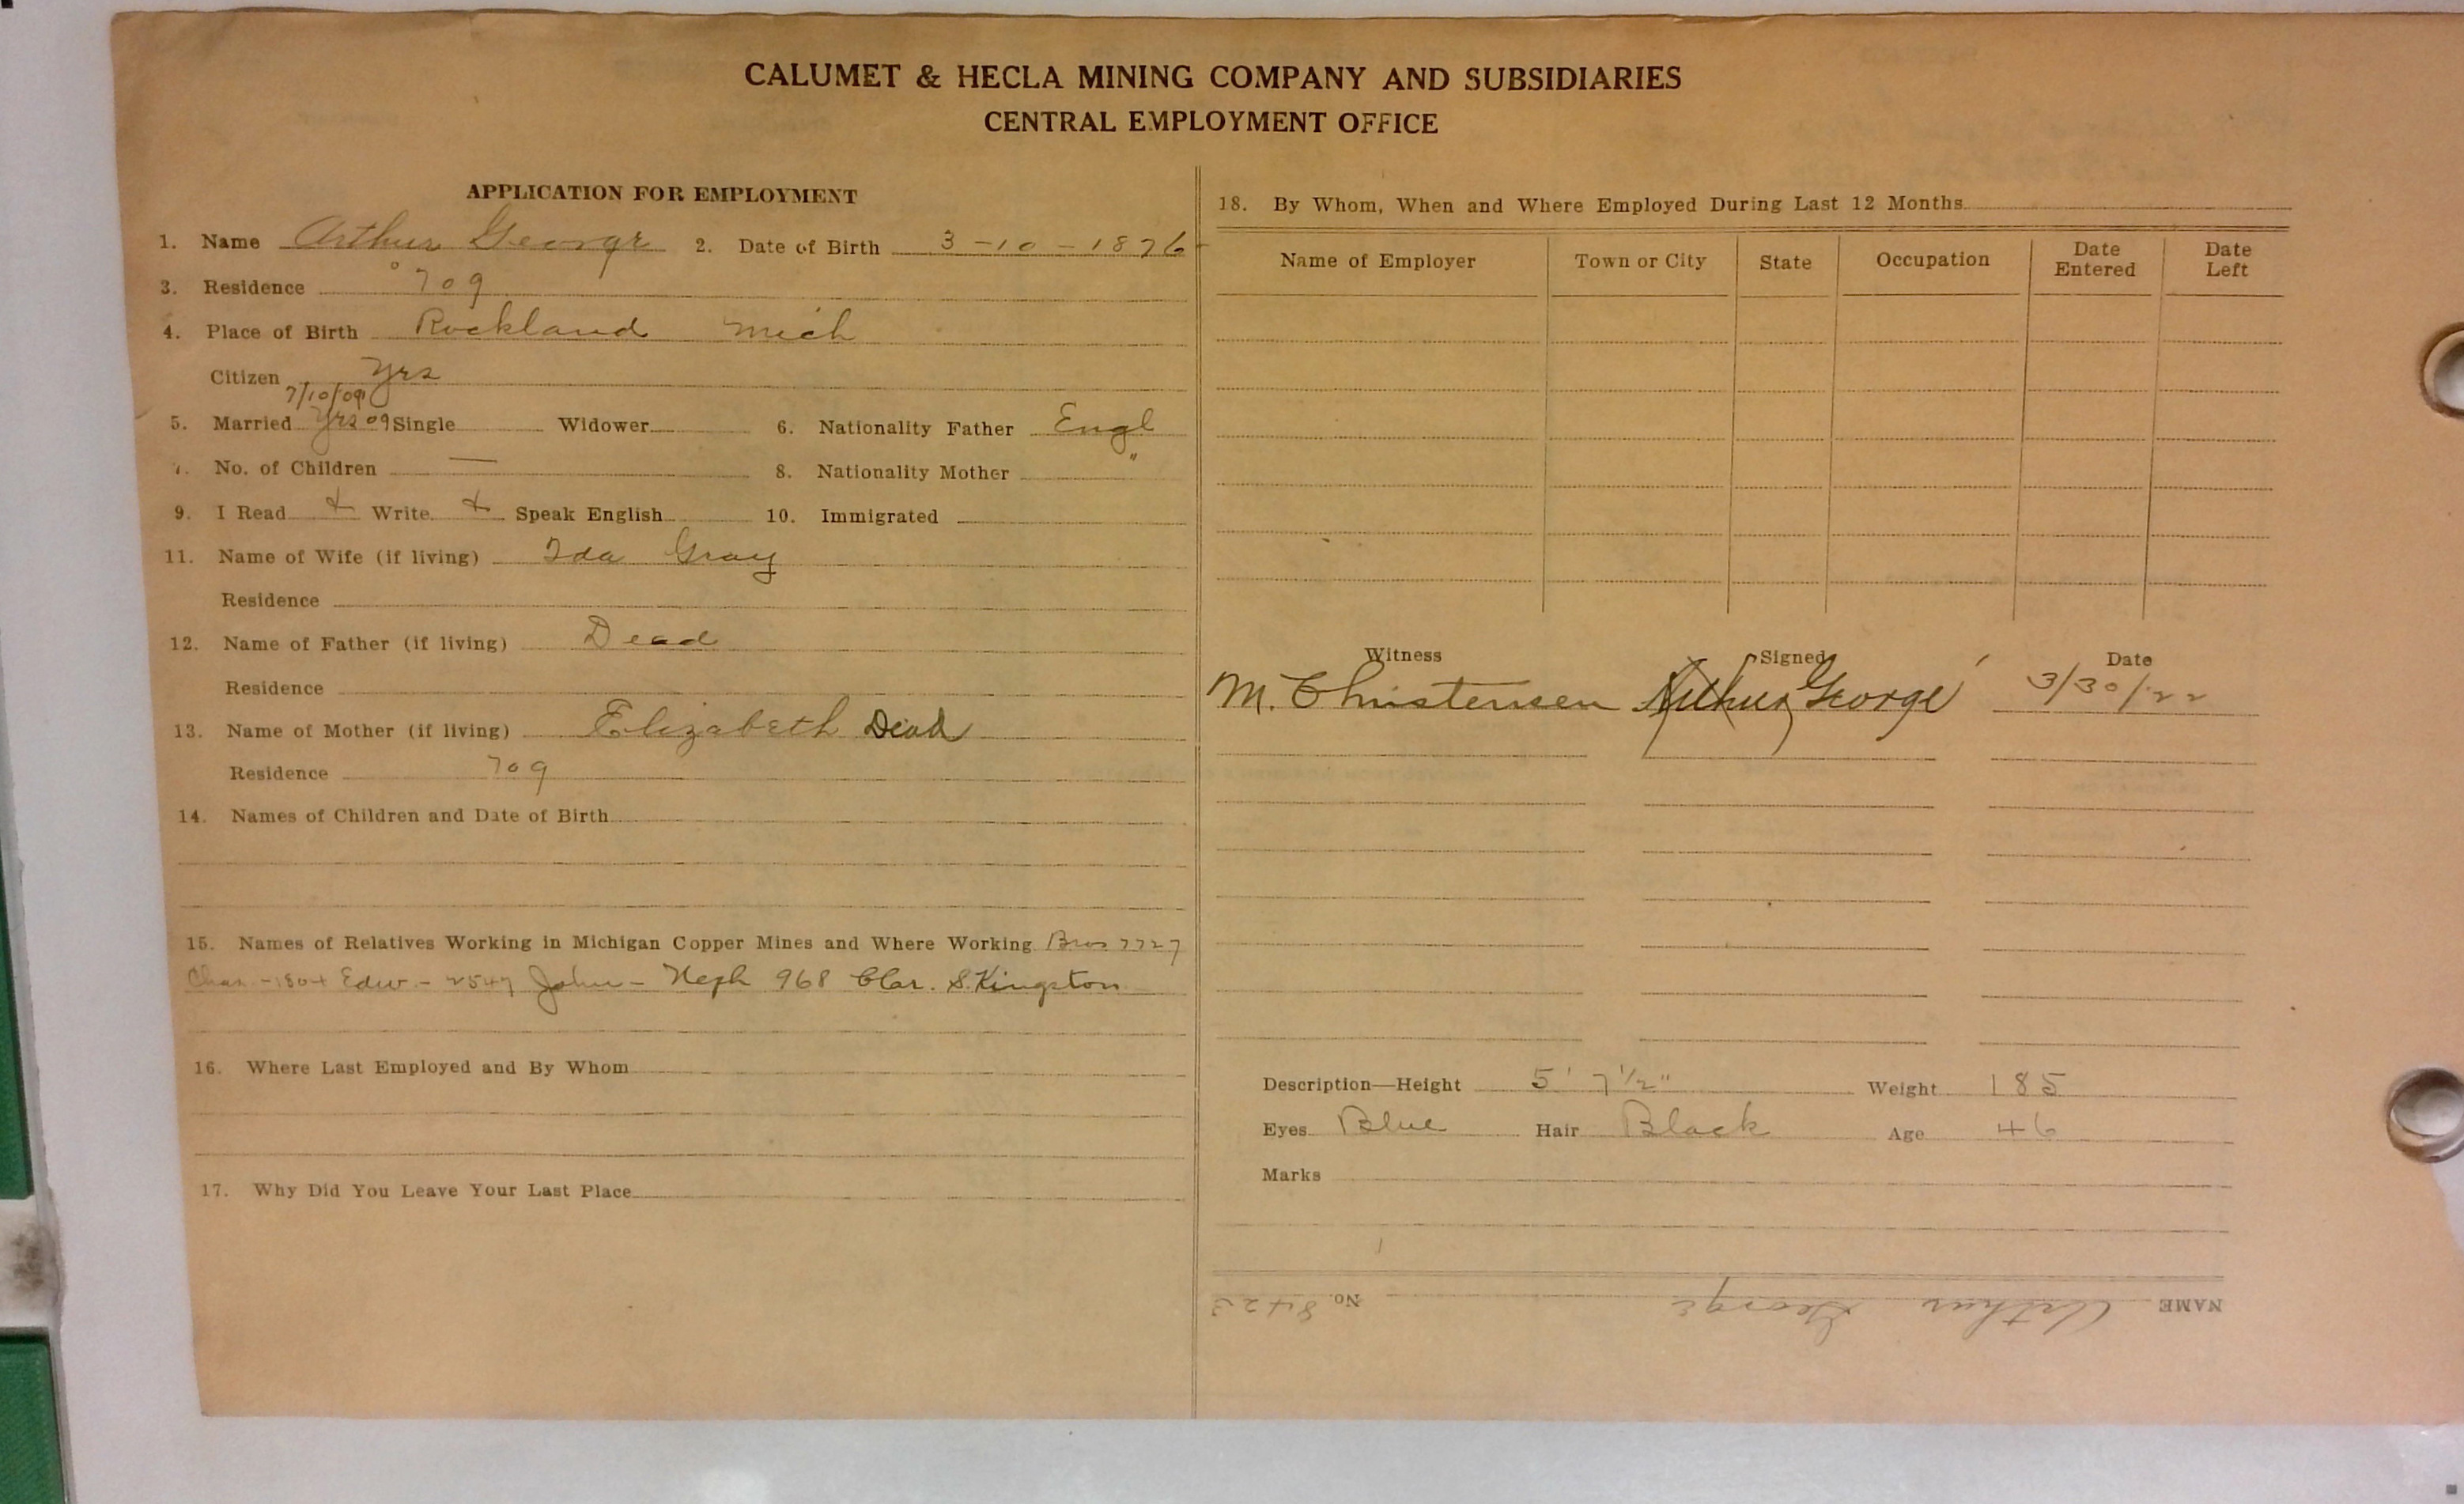 CALUMET & HECLA MINING COMPANY AND SUBSIDIARIES
CENTRAL EMPLOYMENT OFFICE
APPLICATION FOR EMPLOYMENT
1. Name Arthur George 2. Date of Birth 3-10-1876
3. Residence 709
4. Place of Birth Rockland Mich
Citizen Yes
7/10/09
5. Married Yes 09 Single Widower 6. Nationality Father Engl
7. No. of Children — 8. Nationality Mother "
9. I Read + Write + Speak English 10. Immigrated
11. Name of Wife (if living) Ida Gray
Residence
12. Name of Father (if living) Dead
Residence
13. Name of Mother (if living) Elizabeth Dead
Residence 709
14. Names of Children and Date of Birth
15. Names of Relatives Working in Michigan Copper Mines and Where Working Bros 7727
Chas - 1804 Edw - 2547 John - Neph 968 Clar. S. Kingston
16. Where Last Employed and By Whom
17. Why Did You Leave Your Last Place
18. By Whom, When and Where Employed During Last 12 Months
Name of Employer Town or City State Occupation Date Entered Date Left
Witness Signed Date
M. Christensen Arthur George 3/30/22
Description—Height 5' 7 1/2" Weight 185
Eyes Blue Hair Black Age 46
Marks
NAME Arthur George No. 8423